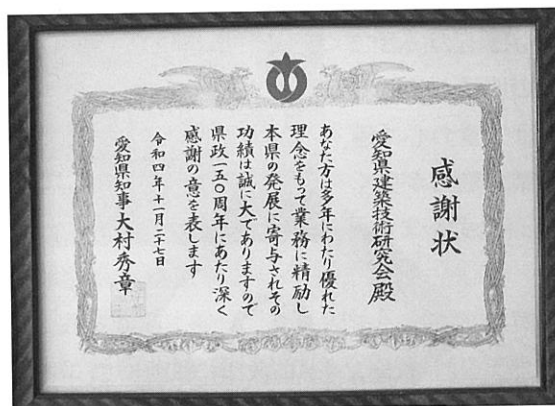 感謝状
愛知県建築技術研究会殿
あなた方は多年にわたり優れた
理念をもって業務に精励し
本県の発展に寄与されその
功績は誠に大でありますので
県政一五〇周年にあたり深く
感謝の意を表します
令和四年十一月二十七日
愛知県知事大村秀章